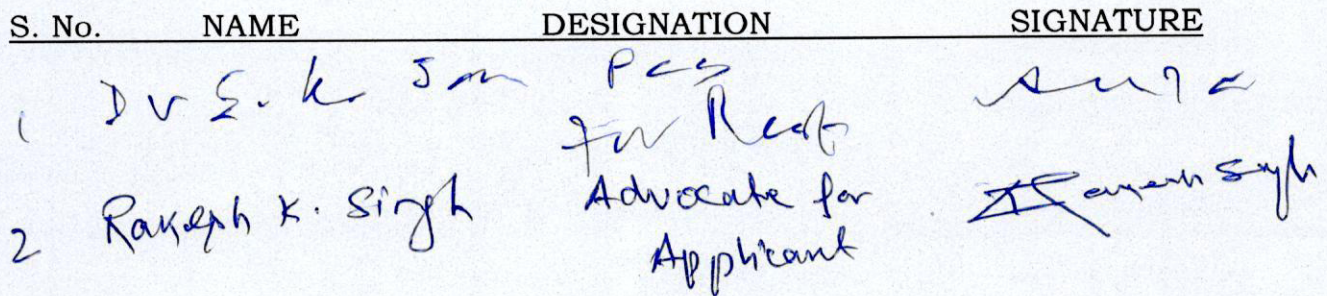 S. No. NAME DESIGNATION SIGNATURE
1 Dr S. K. Jain PCS
for Resp
2 Rakesh K. Singh Advocate for
Applicant